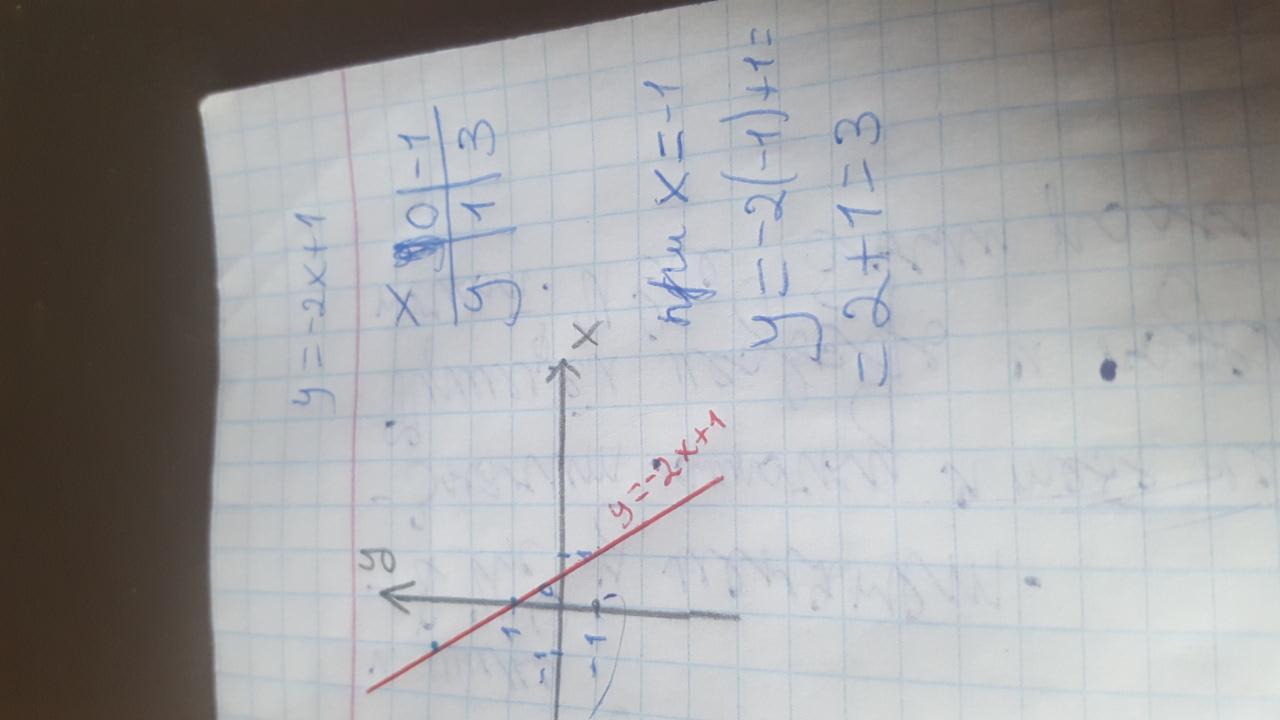 y = -2x+1
x 0 -1
y 1 3
y
x
1
0
1
-1
-1
y=-2x+1
при x=-1
y=-2(-1)+1=
=2+1=3